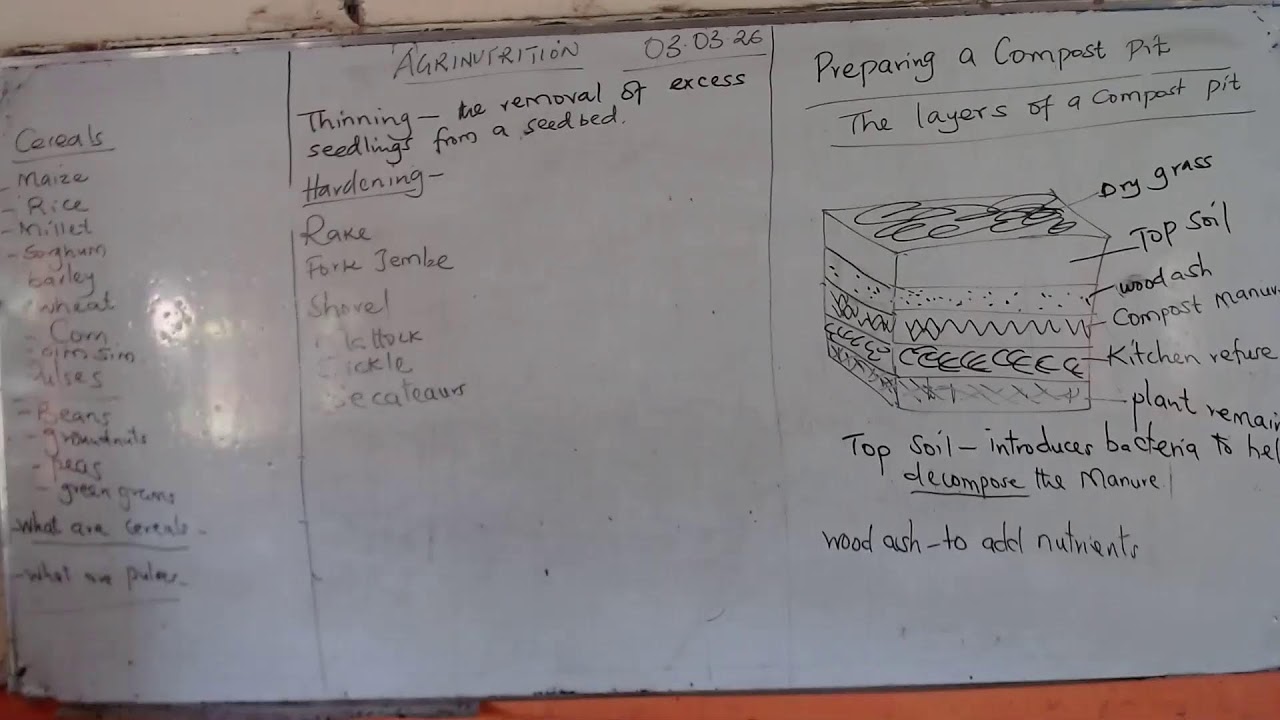 AGRINUTRITION 03.03.26
Cereals
- Maize
- Rice
- Millet
- Sorghum
barley
wheat
- Corn
sim sim
Pulses
- Beans
- groundnuts
- peas
- green grams
- What are cereals -
- What are pulses -
Thinning - the removal of excess
seedlings from a seedbed.
Hardening -
Rake
Fork Jembe
Shovel
Mattock
Sickle
Secateaurs
Preparing a Compost Pit
The layers of a Compost pit
Dry grass
Top Soil
wood ash
Compost manur
Kitchen refuse
plant remain
Top Soil - introduces bacteria to hel
decompose the Manure
wood ash - to add nutrients